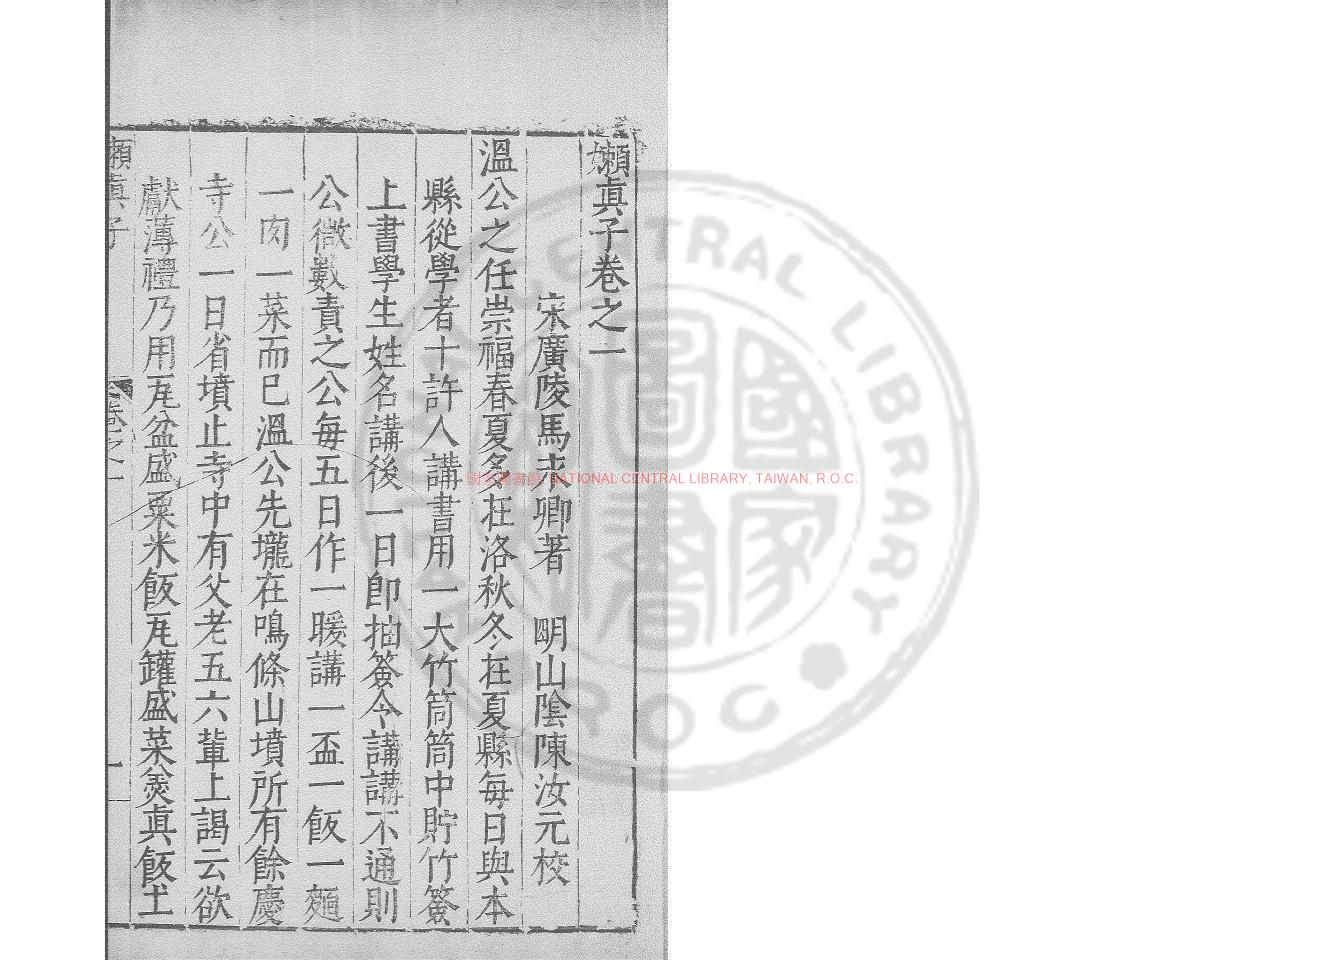 嬾眞子卷之一
宋廣陵馬永卿著　明山陰陳汝元校
溫公之任崇福春夏多在洛秋冬在夏縣每日與本
縣從學者十許人講書用一大竹筒筒中貯竹簽
上書學生姓名講後一日卽抽簽令講講不通則
公微數責之公每五日作一暖講一盃一飯一麵
一肉一菜而巳溫公先壠在鳴條山墳所有餘慶
寺公一日省墳止寺中有父老五六輩上謁云欲
獻薄禮乃用瓦盆盛粟米飯瓦罐盛菜羹眞飯土
嬾眞子
卷之一
一
國家圖書館 NATIONAL CENTRAL LIBRARY, TAIWAN, R.O.C.
CENTRAL LIBRARY
R.O.C
國家圖書館